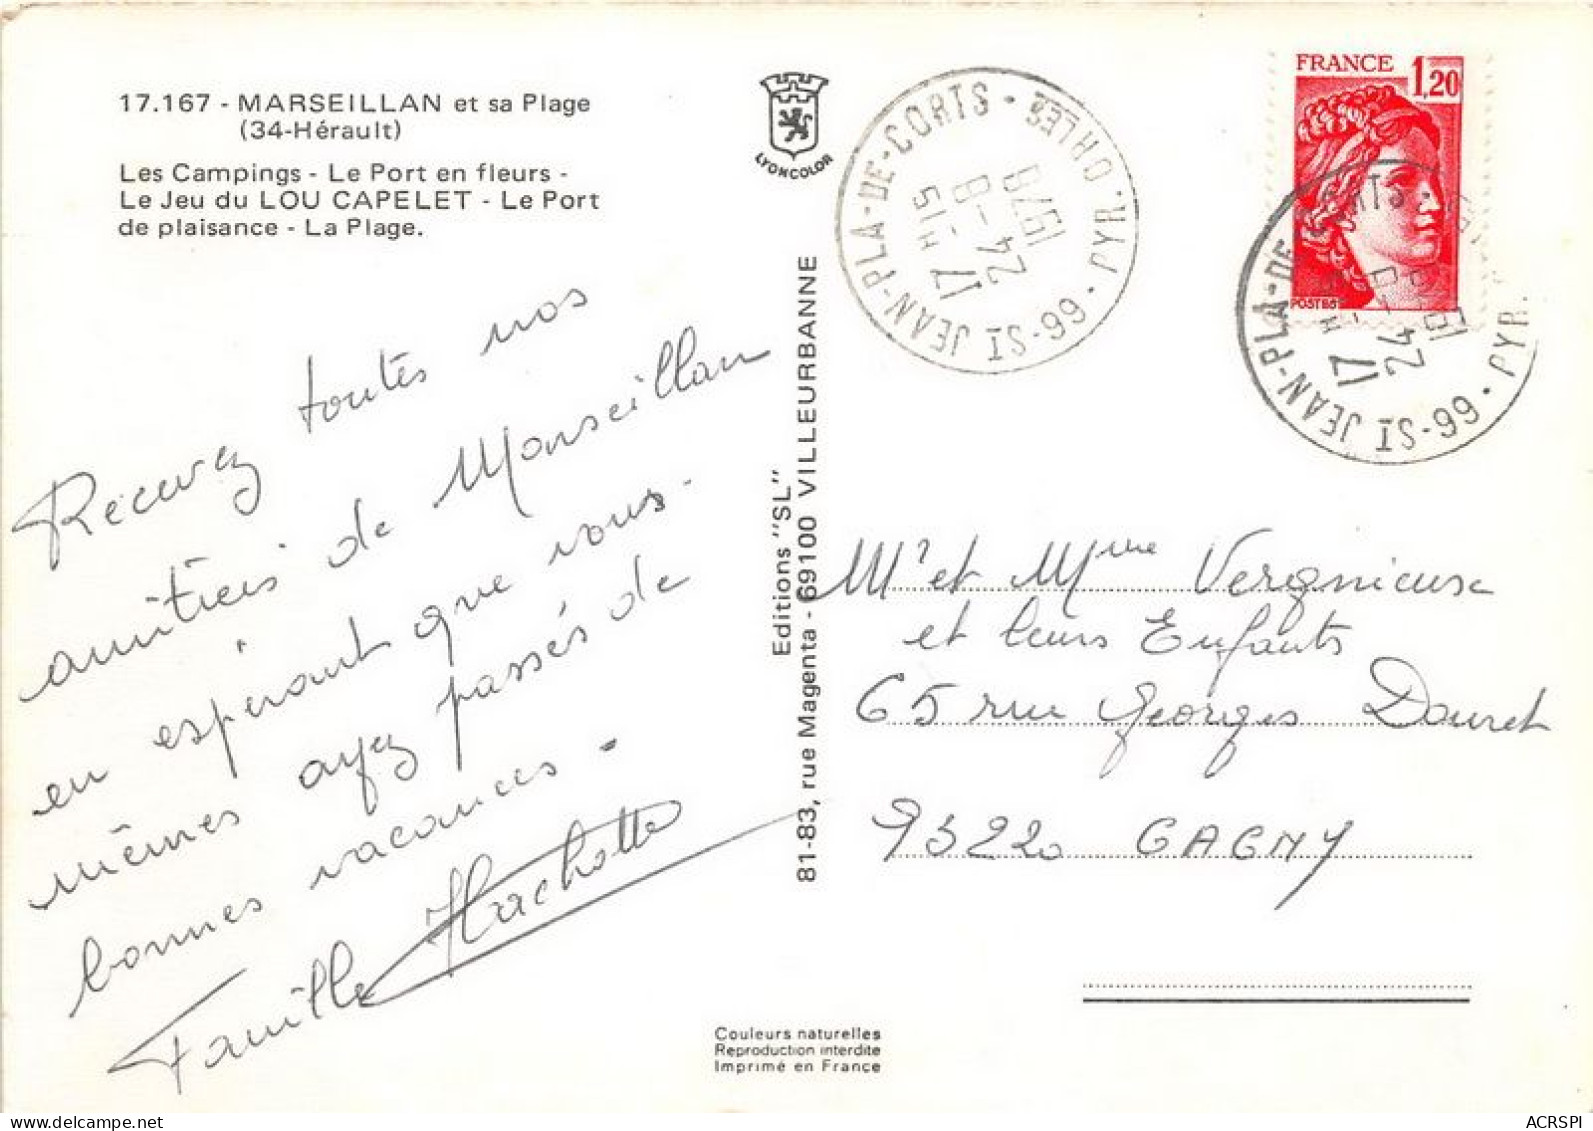 17.167 - MARSEILLAN et sa Plage
(34-Hérault)
Les Campings - Le Port en fleurs -
Le Jeu du LOU CAPELET - Le Port
de plaisance - La Plage.
LYONCOLOR
Recevez toutes nos
amitiés de Marseillan
en espérant que vous-
mêmes ayez passés de
bonnes vacances -
Famille Hachette
Editions "SL"
81-83, rue Magenta - 69100 VILLEURBANNE
Couleurs naturelles
Reproduction interdite
Imprimé en France
ST JEAN-PLA-DE-CORTS - PYR. ORLES
66
17 H 15
24 - 8
1979
FRANCE 1,20
POSTES
ST JEAN-PLA-DE-CORTS
66 - PYR.
17 H
24 - 8
19
Mr et Mme Vergnieuse
et leurs Enfants
65 rue Georges Douret
93220 GAGNY
delcampe.net
ACRSPI